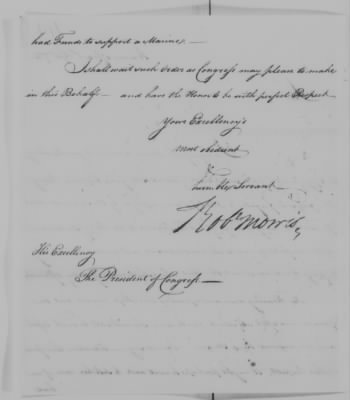 had Funds to support a Marine. —
I shall wait such Order as Congress may please to make
in this Behalf — and have the Honor to be with perfect Respect
Your Excellency's
most obedient
&
humble Servant —
Robt Morris
His Excellency
The President of Congress —